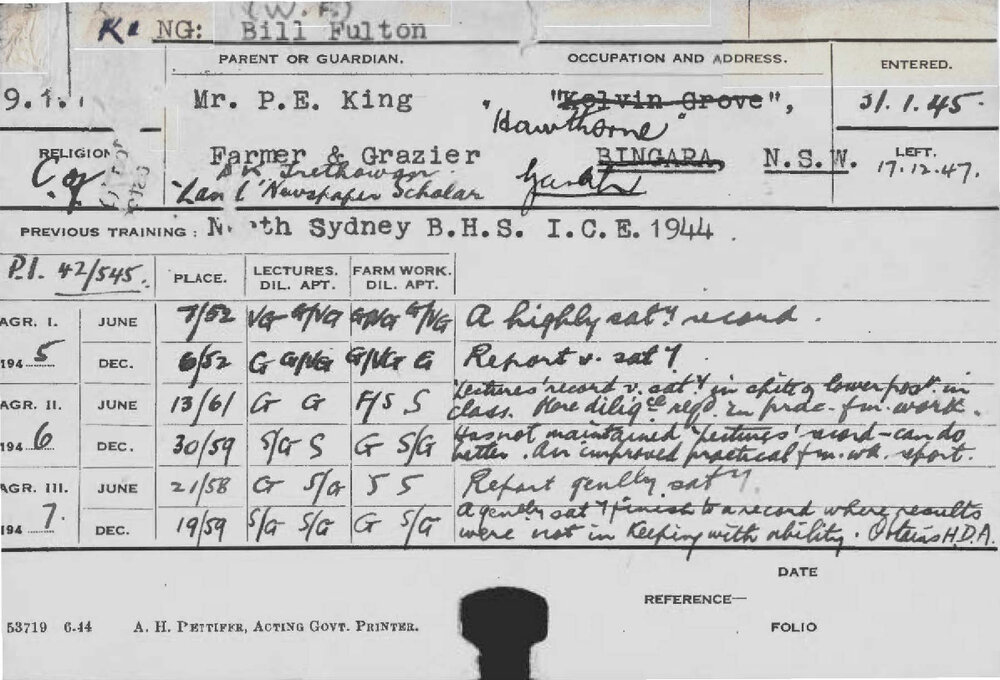 (W.F.)
KING: Bill Fulton
PARENT OR GUARDIAN. OCCUPATION AND ADDRESS. ENTERED.
Mr. P.E. King "Kelvin Grove", 31.1.45.
"Hawthorne"
RELIGION Farmer & Grazier BINGARA, N.S.W. LEFT.
C. of Trethowan 17.12.47.
Newspaper Scholar
PREVIOUS TRAINING: North Sydney B.H.S. I.C.E. 1944.
P.I. 42/545. PLACE. LECTURES. DIL. APT. FARM WORK. DIL. APT.
AGR. I. JUNE 7/52 VG G/VG G/VG G/VG A highly sat.y record.
1945 DEC. 6/52 G G/VG G/VG G Report v. sat y.
AGR. II. JUNE 13/61 G G F/S S 'Lectures' record v. sat y in spite of lower posn in
class. More diligce reqd. in prac. fm. work.
1946 DEC. 30/59 S/G S G S/G Has not maintained 'lectures' record - can do
better. An improved practical fm. wk. report.
AGR. III. JUNE 21/58 G S/G S S Report genlly sat y.
1947. DEC. 19/59 S/G S/G G S/G A genlly sat y finish to a record where results
were not in keeping with ability. Obtains H.D.A.
DATE
REFERENCE—
53719 6-44 A. H. PETTIFER, ACTING GOVT. PRINTER. FOLIO